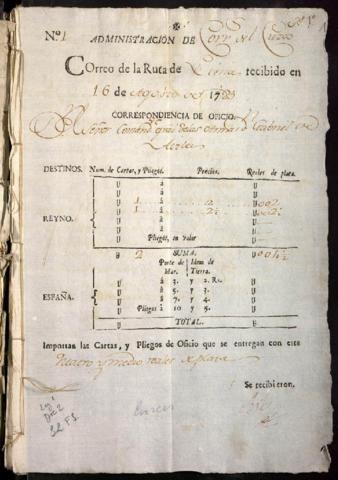 N.º 1
ADMINISTRACIÓN DE Corr.s del Cuzco
Correo de la Ruta de Lima recibido en
16 de Agosto de 1783
CORRESPONDENCIA DE OFICIO.
Señor Comand.te gral de las Armas Gabriel de
DESTINOS. Num. de Cartas, y Pliegos. Precios. Reales de plata.
á
1 á 2 002
REYNO. 1 á 2½ 002½
á
á
Pliegos, su valor
2 SUMA. 004½
Porte de Mar. Idem de Tierra.
á 3. y 2. Rs.
á 5. y 3.
ESPAÑA. á 7. y 4.
Pliegos á 10 y 5.
TOTAL.
Importan las Cartas, y Pliegos de Oficio que se entregan con esta
Quatro y medio reales de plata
Se recibieron.